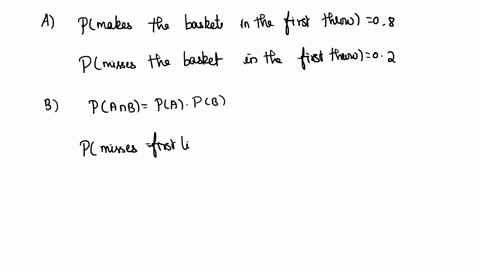 A) P(makes the basket in the first throw) = 0.8
P(misses the basket in the first throw) = 0.2
B) P(A∩B) = P(A). P(B)
P(misses first